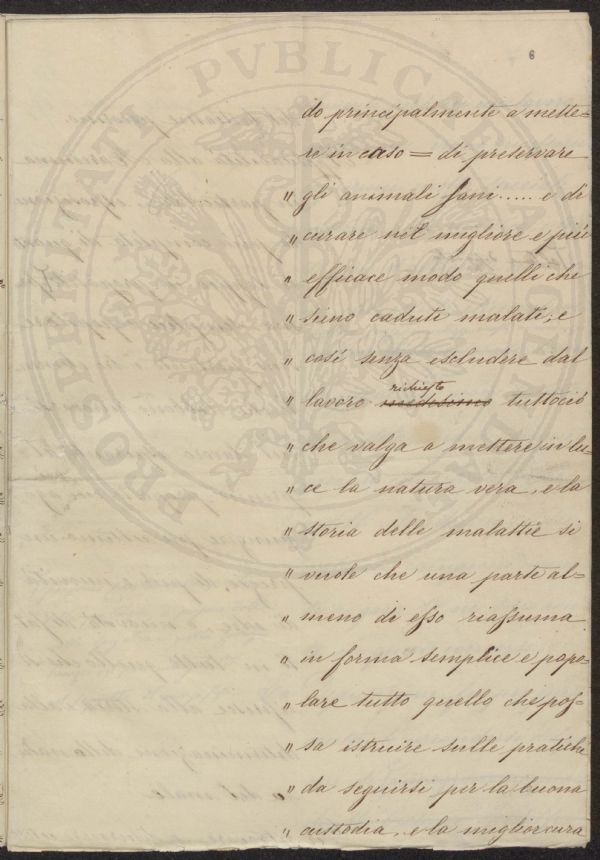 6
do principalmente a mette=
re in caso = di preservare
" gli animali sani..... e di
" curare nel migliore e più
" efficace modo quelli che
" sieno caduti malati; e
" così senza escludere dal
" lavoro richiesto tuttociò
" che valga a mettere in lu=
" ce la natura vera, e la
" storia delle malattie si
" vuole che una parte al=
" meno di esso riassuma
" in forma semplice e popo=
" lare tutto quello che pos=
" sa istruire sulle pratiche
" da seguirsi per la buona
" custodia, e la miglior cura
PROSPERITATI PVBLICAE